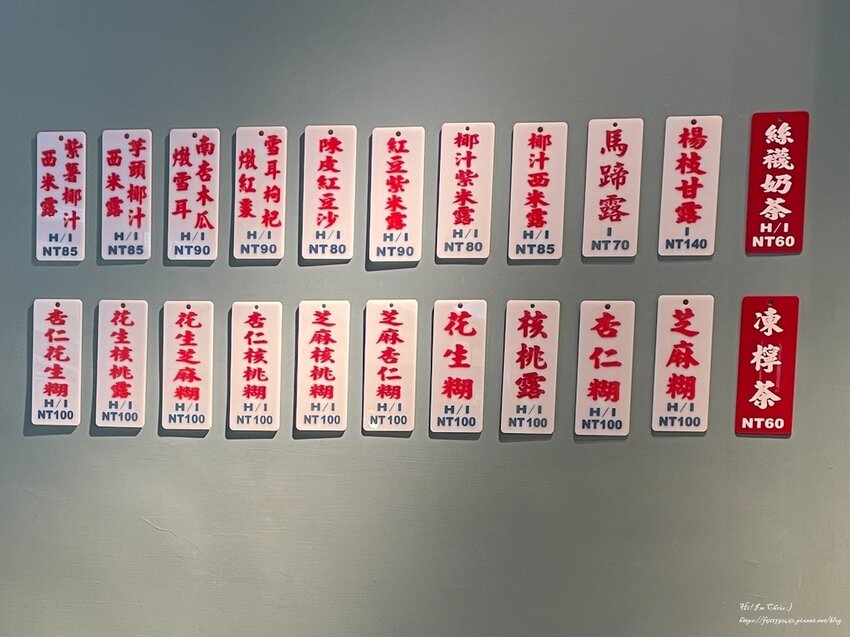 紫薯椰汁
西米露
H/I
NT85
芋頭椰汁
西米露
H/I
NT85
南杏木瓜
燉雪耳
H/I
NT90
雪耳枸杞
燉紅棗
H/I
NT90
陳皮紅豆沙
H/I
NT80
紅豆紫米露
H/I
NT90
椰汁紫米露
H/I
NT80
椰汁西米露
H/I
NT85
馬蹄露
I
NT70
楊枝甘露
I
NT140
絲襪奶茶
H/I
NT60
杏仁花生糊
H/I
NT100
花生核桃露
H/I
NT100
花生芝麻糊
H/I
NT100
杏仁核桃糊
H/I
NT100
芝麻核桃糊
H/I
NT100
芝麻杏仁糊
H/I
NT100
花生糊
H/I
NT100
核桃露
H/I
NT100
杏仁糊
H/I
NT100
芝麻糊
H/I
NT100
凍檸茶
NT60
Hi! I'm Chris :)